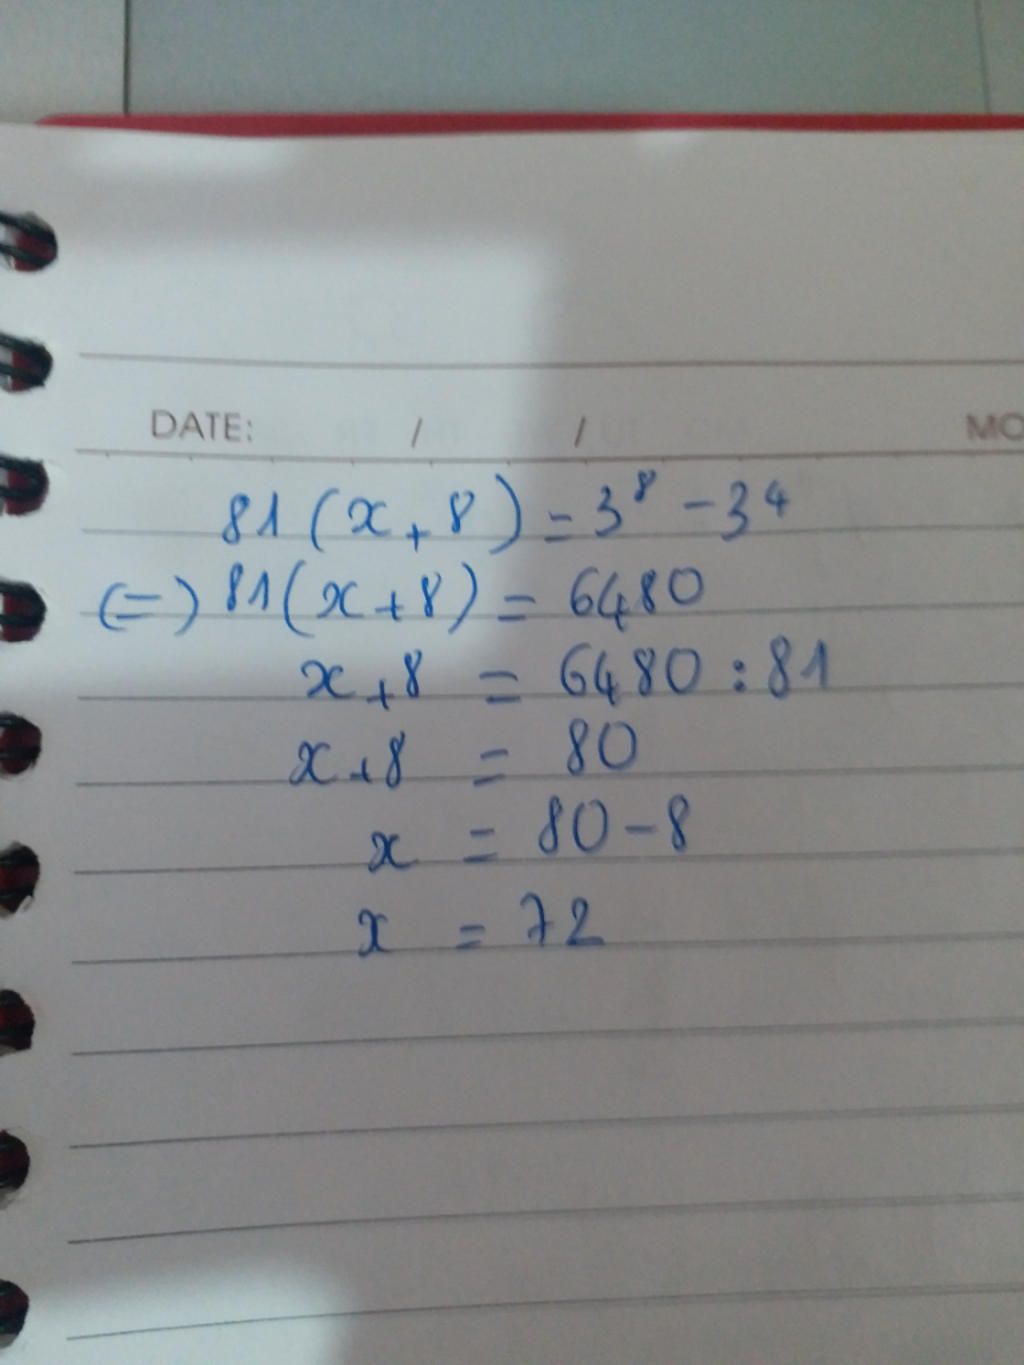 DATE: / / MO
81(x+8)=3⁸-3⁴
(=) 81(x+8) = 6480
x+8 = 6480:81
x+8 = 80
x = 80-8
x = 72